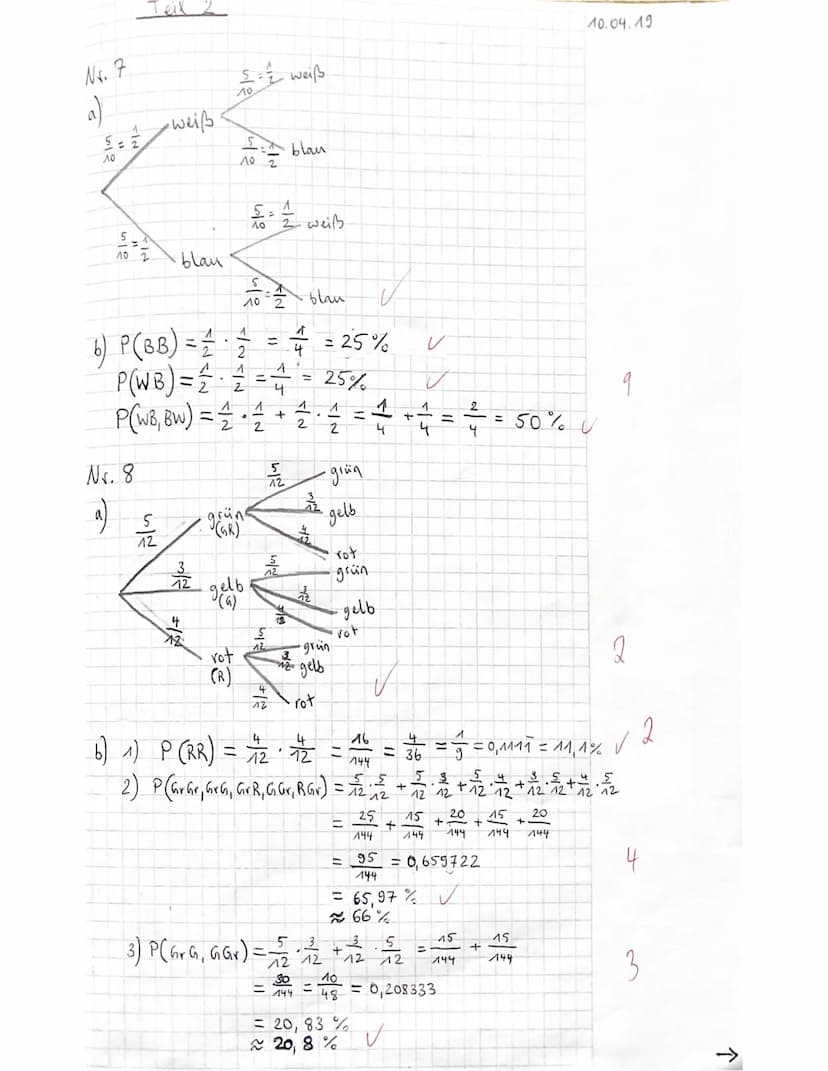 Teil 2
10.04.19
Nr. 7
a)
5/10 = 1/2 weiß
5/10 = 1/2 weiß
5/10 = 1/2 blau
5/10 = 1/2 blau
5/10 = 1/2 weiß
5/10 = 1/2 blau ✓
b) P(BB) = 1/2 · 1/2 = 1/4 = 25% ✓
P(WB) = 1/2 · 1/2 = 1/4 = 25% ✓
9
P(WB, BW) = 1/2 · 1/2 + 1/2 · 1/2 = 1/4 + 1/4 = 2/4 = 50% ✓
Nr. 8
a)
5/12 grün (GR)
5/12 grün
3/12 gelb
4/12 rot
3/12 gelb (G)
5/12 grün
3/12 gelb
4/12 rot
4/12 rot (R)
5/12 grün
3/12 gelb
4/12 rot ✓
2
b) 1) P(RR) = 4/12 · 4/12 = 16/144 = 4/36 = 1/9 = 0,1111̅ = 11,1% ✓ 2
2) P(GrGr, GrG, GrR, GGr, RGr) = 5/12 · 5/12 + 5/12 · 3/12 + 5/12 · 4/12 + 3/12 · 5/12 + 4/12 · 5/12
= 25/144 + 15/144 + 20/144 + 15/144 + 20/144
= 95/144 = 0,659722
4
= 65,97 % ✓
≈ 66 %
3) P(GrG, GGr) = 5/12 · 3/12 + 3/12 · 5/12 = 15/144 + 15/144
3
= 30/144 = 10/48 = 0,208333
= 20,83 %
≈ 20,8 % ✓
→